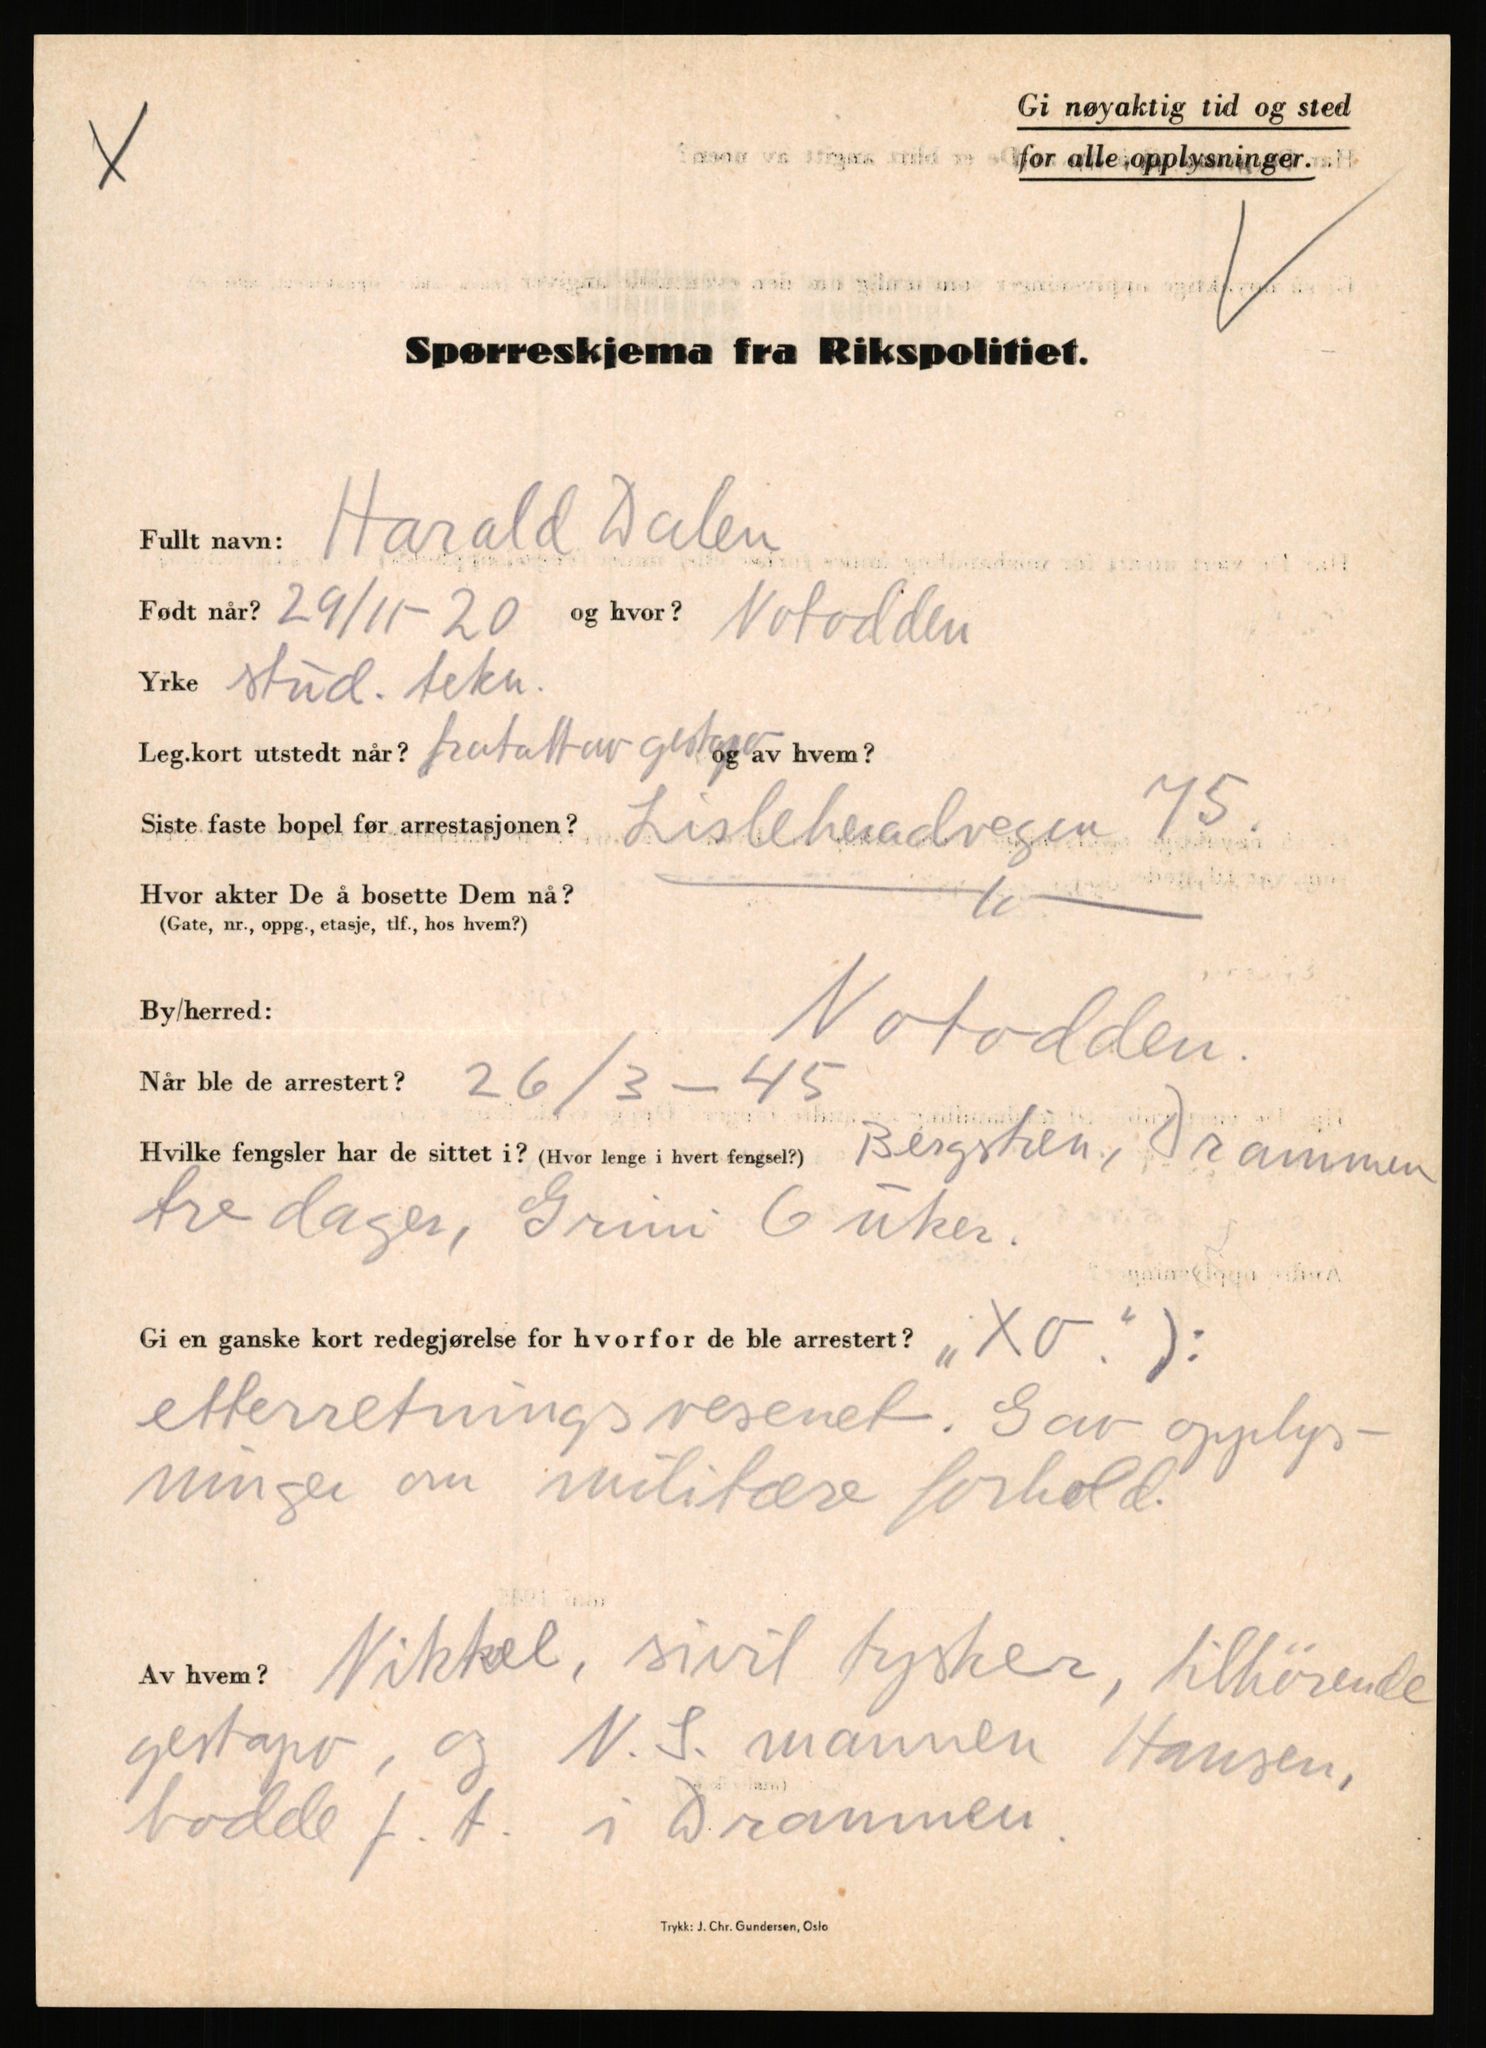 X
Gi nøyaktig tid og sted
for alle opplysninger.
Spørreskjema fra Rikspolitiet.
Fullt navn: Harald Dalen
Født når? 29/11-20 og hvor? Notodden
Yrke stud. tekn.
Leg.kort utstedt når? fratatt av gestapo og av hvem?
Siste faste bopel før arrestasjonen? Lisleheradvegen 75.
Hvor akter De å bosette Dem nå? — " —
(Gate, nr., oppg., etasje, tlf., hos hvem?)
By/herred: Notodden.
Når ble de arrestert? 26/3-45
Hvilke fengsler har de sittet i? (Hvor lenge i hvert fengsel?) Bergstien, Drammen
tre dager, Grini 6 uker.
Gi en ganske kort redegjørelse for hvorfor de ble arrestert? „XO.“):
etterretningsvesenet. Gav opplys-
ninger om militære forhold.
Av hvem? Nikkel, sivil tysker, tilhörende
gestapo, og N.S. mannen Hansen,
bodde f. t. i Drammen.
Trykk: J. Chr. Gundersen, Oslo